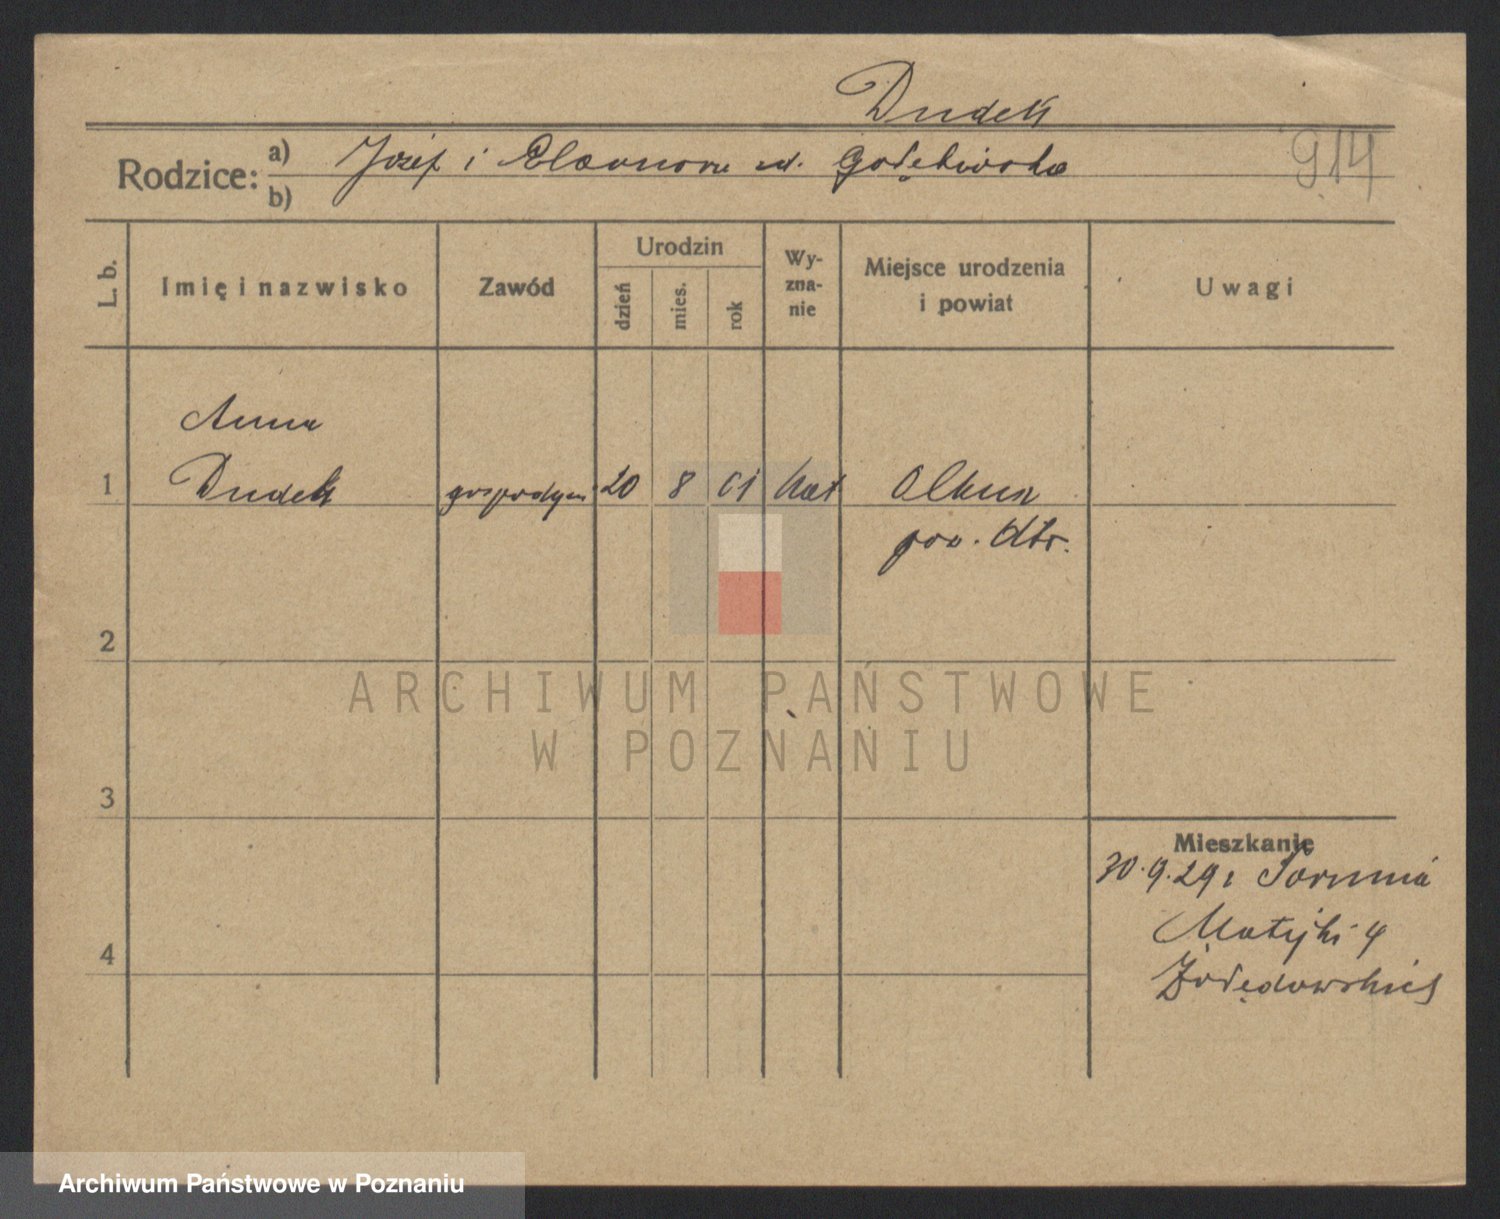 Dudek
Rodzice: a) Józef i Eleonora ur. Gołębiewska
b)
914
L. b.
Imię i nazwisko
Zawód
Urodzin
dzień
mies.
rok
Wy-
zna-
nie
Miejsce urodzenia
i powiat
Uwagi
Anna
1 Dudek gospodyni 20 8 01 kat
pow.
2
3
4
Mieszkanie
30.9.29
Matejki 4
ARCHIWUM PAŃSTWOWE
W POZNANIU
Archiwum Państwowe w Poznaniu